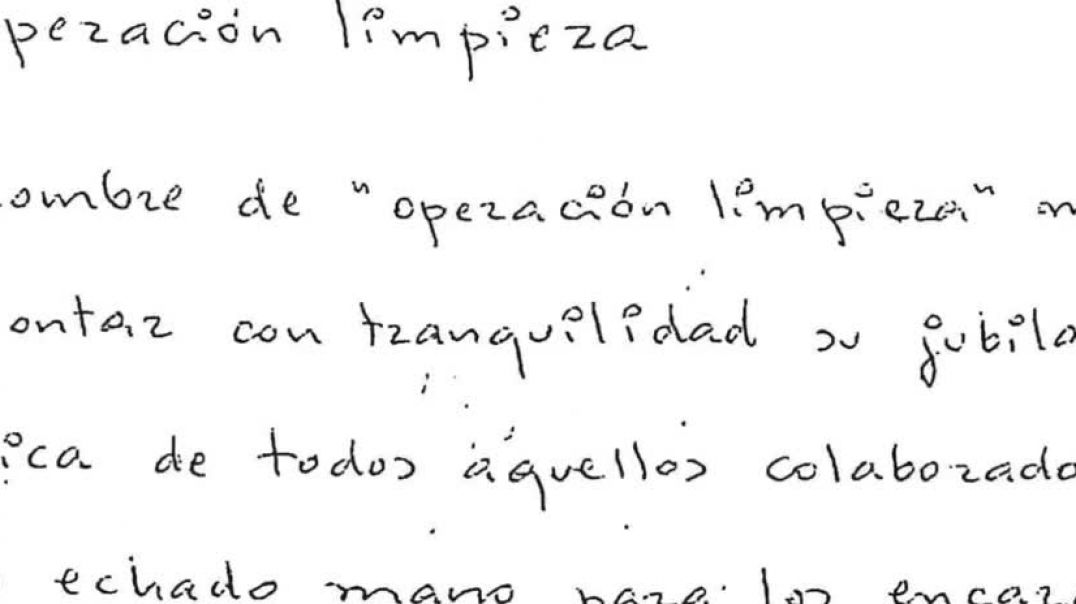 peración limpieza
ombre de "operación limpieza" m
ontar con tranquilidad su jubila
ica de todos aquellos colaborado
echado mano para los encar